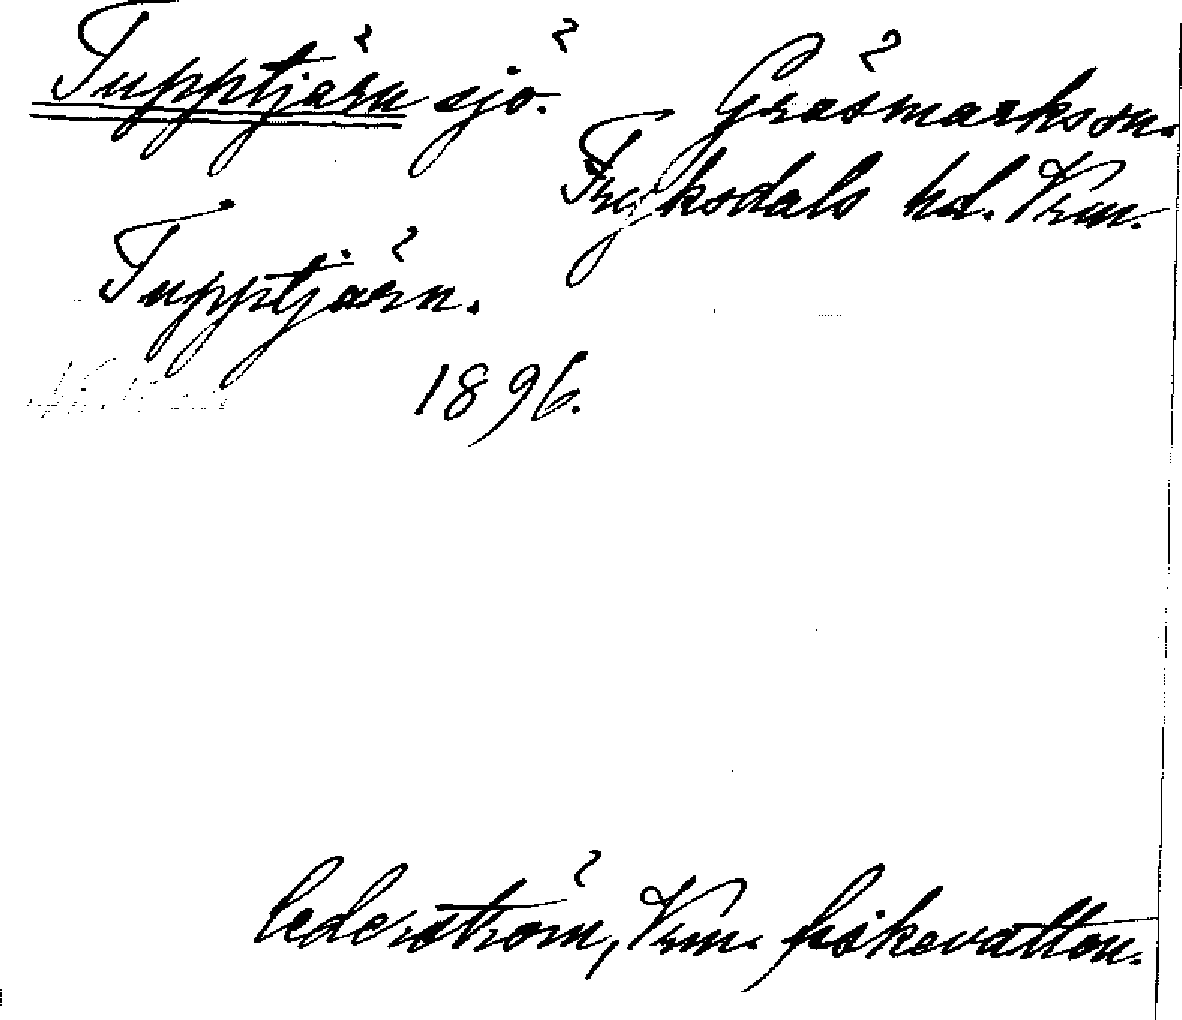 Tupptjärn sjö. Gräsmarks sn.
Fryksdals hd. Vrm.
Tupptjärn.
1896.
Cederström, Vrm. fiskevatten.